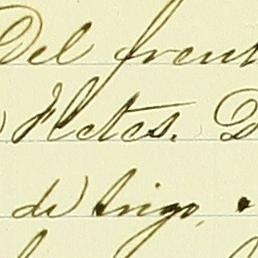 Del frent
Fletes. D
de trigo,